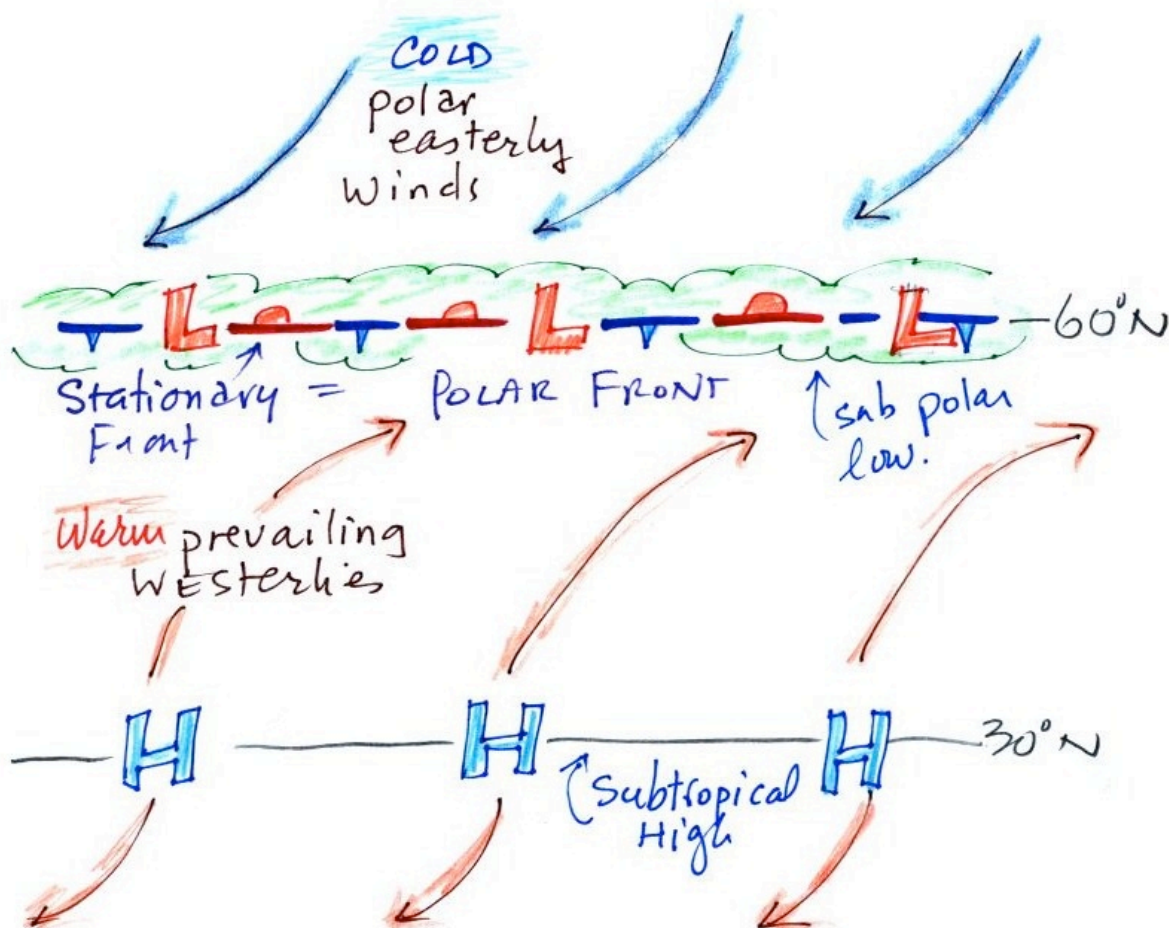 COLD
polar
easterly
winds
L L L 60°N
Stationary = POLAR FRONT
Front
sub polar
low.
Warm prevailing
WESterlies
H H H 30°N
Subtropical
High